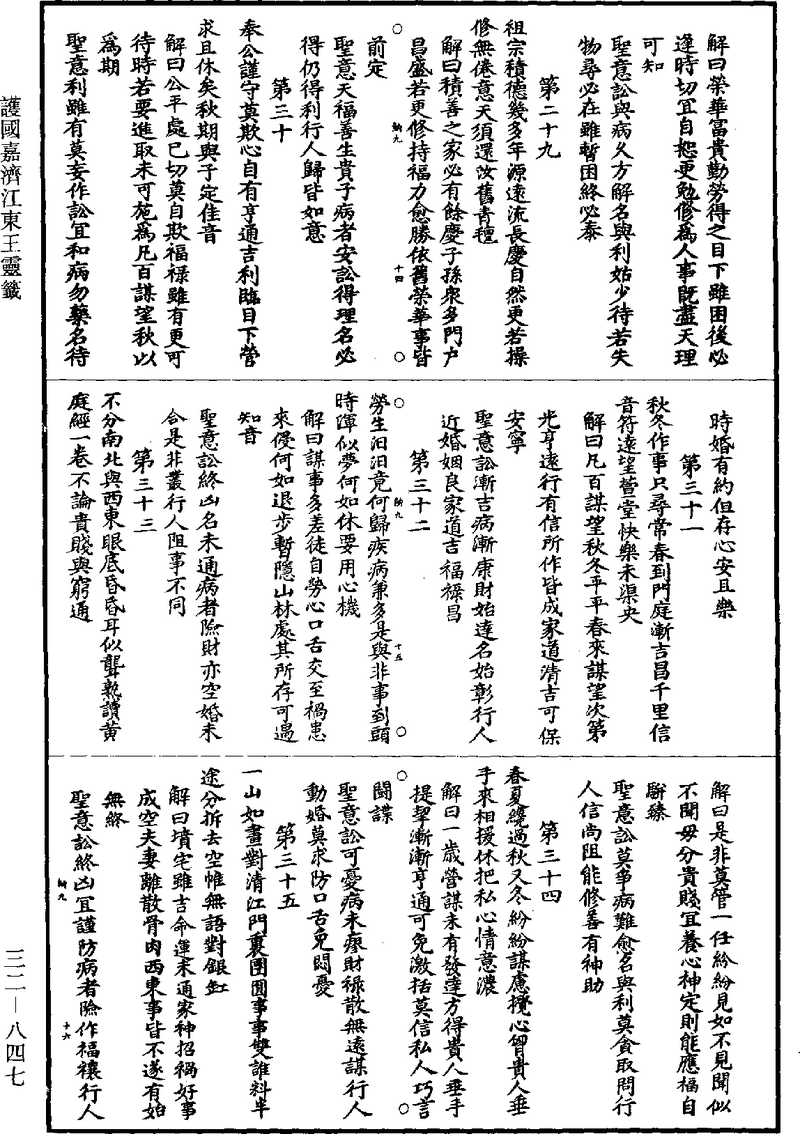 解曰榮華富貴勤勞得之目下雖困後必
逢時切宜自恕更勉修為人事既盡天理
可知
聖意訟與病久方解名與利姑少待若失
物尋必在雖暫困終必泰
第二十九
祖宗積德幾多年源遠流長慶自然更若操
修無倦意天須還汝舊青氈
解曰積善之家必有餘慶子孫衆多門户
昌盛若更修持福力愈勝依舊榮華事皆
前定
聖意天福善生貴子病者安訟得理名必
得仍得利行人歸皆如意
第三十
奉公謹守莫欺心自有亨通吉利臨目下營
求且休矣秋期與子定佳音
解曰公平處已切莫自欺福禄雖有更可
待時若要進取未可施為凡百謀望秋以
為期
聖意利雖有莫妄作訟宜和病勿藥名待
時婚有約但存心安且樂
第三十一
秋冬作事只尋常春到門庭漸吉昌千里信
音符遠望萱堂快樂未渠央
解曰凡百謀望秋冬平平春來謀望次第
光亨遠行有信所作皆成家道清吉可保
安寧
聖意訟漸吉病漸康財始達名始彰行人
近婚姻良家道吉福禄昌
第三十二
勞生汩汩竟何歸疾病兼多是與非事到頭
時渾似夢何如休要用心機
解曰謀事多差徒自勞心口舌交至禍患
來侵何如退步暫隱山林處其所存可遇
知音
聖意訟終凶名未通病者險財亦空婚未
合是非叢行人阻事不同
第三十三
不分南北與西東眼底昏昏耳似聾熟讀黃
庭經一卷不論貴賤與窮通
解曰是非莫管一任紛紛見如不見聞似
不聞毋分貴賤宜養心神定則能應福自
駢臻
聖意訟莫事病難愈名與利莫貪取問行
人信尚阻能修善有神助
第三十四
春夏纔過秋又冬紛紛謀慮攪心胷貴人垂
手來相援休把私心情意濃
解曰一歲營謀未有發達方得貴人垂手
提挈漸漸亨通可免激括莫信私人巧言
鬪諜
聖意訟可憂病未瘳財禄散無遠謀行人
動婚莫求防口舌免悶憂
第三十五
一山如畫對清江門裏團圓事事雙誰料半
途分折去空惟無語對銀缸
解曰墳宅雖吉命運未通家神招禍好事
成空夫妻離散骨肉西東事皆不遂有始
無終
聖意訟終凶宜謹防病者險作福禳行人
護國嘉濟江東王靈籤
三二—八四七